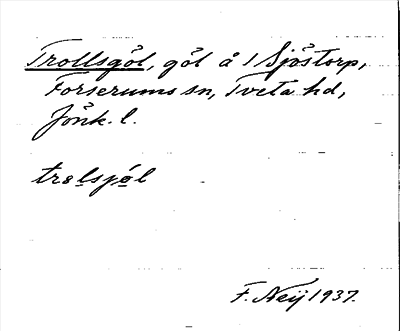 Trollsgöl, göl å 1 Sjöstorp,
Forserums sn, Tveta hd,
Jönk. l.
trɵlsjøl
F. Neij 1937.